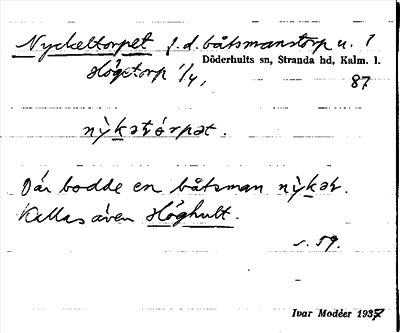 Nyckeltorpet f.d. båtsmanstorp u. 1
Högetorp 1/4, Döderhults sn, Stranda hd, Kalm. l.
87
nỳkatórpat.
Där bodde en båtsman nỳkal.
Kallas även Höghult.
s. 59.
Ivar Modéer 1937